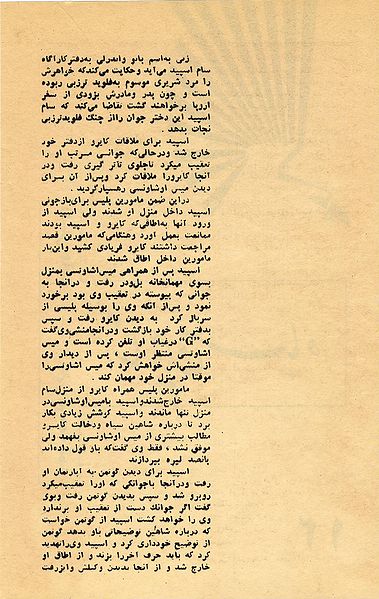 زنی به‌اسم بانو واندرلی به‌دفترکارآگاه
سام اسپید می‌آید وحکایت می‌کند‌که خواهرش
را مرد شریری موسوم به‌فلوید ترزبی ربوده
است و چون پدر ومادرش بزودی از سفر
اروپا برخواهند گشت تقاضا می‌کند که سام
اسپید این دختر جوان رااز چنگ فلویدترزبی
نجات بدهد .
اسپید برای ملاقات کایرو ازدفتر خود
خارج شد ودرحالی‌که جوانی مرتب او را
تعقیب میکرد تاجلوی تآتر گیری رفت ودر
آنجا کایرورا ملاقات کرد وپس‌از آن برای
دیدن میس اوشاونسی رهسپارگردید .
دراین ضمن مامورین پلیس برای‌بازجوئی
اسپید داخل منزل او شدند ولی اسپید از
ورود آنها به‌اطاقی‌که کایرو و اسپید بودند
ممانعت بعمل آورد وهنگامی‌که مامورین قصد
مراجعت داشتند کایرو فریادی کشید واین‌بار
مامورین داخل اطاق شدند
اسپید پس از همراهی میس‌اوشاونسی بمنزل
بسوی مهمانخانه بل‌ودر رفت و درآنجا به
جوانی که پیوسته در تعقیب وی بود برخورد
نمود و پس‌از آنکه وی را بوسیله پلیسی از
سرباز کرد به دیدن کایرو رفت و سپس
بدفتر کار خود بازگشت ودرآنجامنشی‌وی‌گفت
که "G" درغیاب او تلفن کرده است و میس
اشاونسی منتظر اوست ، پس از دیدار وی
از منشی‌اش خواهش کرد که میس اشاونسی‌را
موقتا در منزل خود مهمان کند .
مامورین پلیس همراه کایرو از منزل‌سام
اسپید خارج‌شدندواسپید بامیس‌اوشاونسی‌در
منزل تنها ماندند واسپید کوشش زیادی بکار
برد تا درباره شاهین سیاه ودخالت کایرو
مطالب بیشتری از میس اوشاونسی بفهمد ولی
موفق نشد ، فقط وی گفت‌که باو قول داده‌اند
پانصد لیره بپردازند
اسپید برای دیدن گوتمن به آپارتمان او
رفت ودرآنجا باجوانکی که اورا تعقیب‌میکرد
روبرو شد و سپس بدیدن گوتمن رفت وبوی
گفت اگر جوانك دست از تعقیب او برندارد
وی را خواهد کشت اسپید از گوتمن خواست
که درباره شاهین توضیحاتی باو بدهد گوتمن
از توضیح خودداری کرد و اسپید وی‌راتهدید
کرد که باید حرف آخررا بزند و از اطاق او
خارج شد و از آنجا بدیدن وکیلش وایزرفت